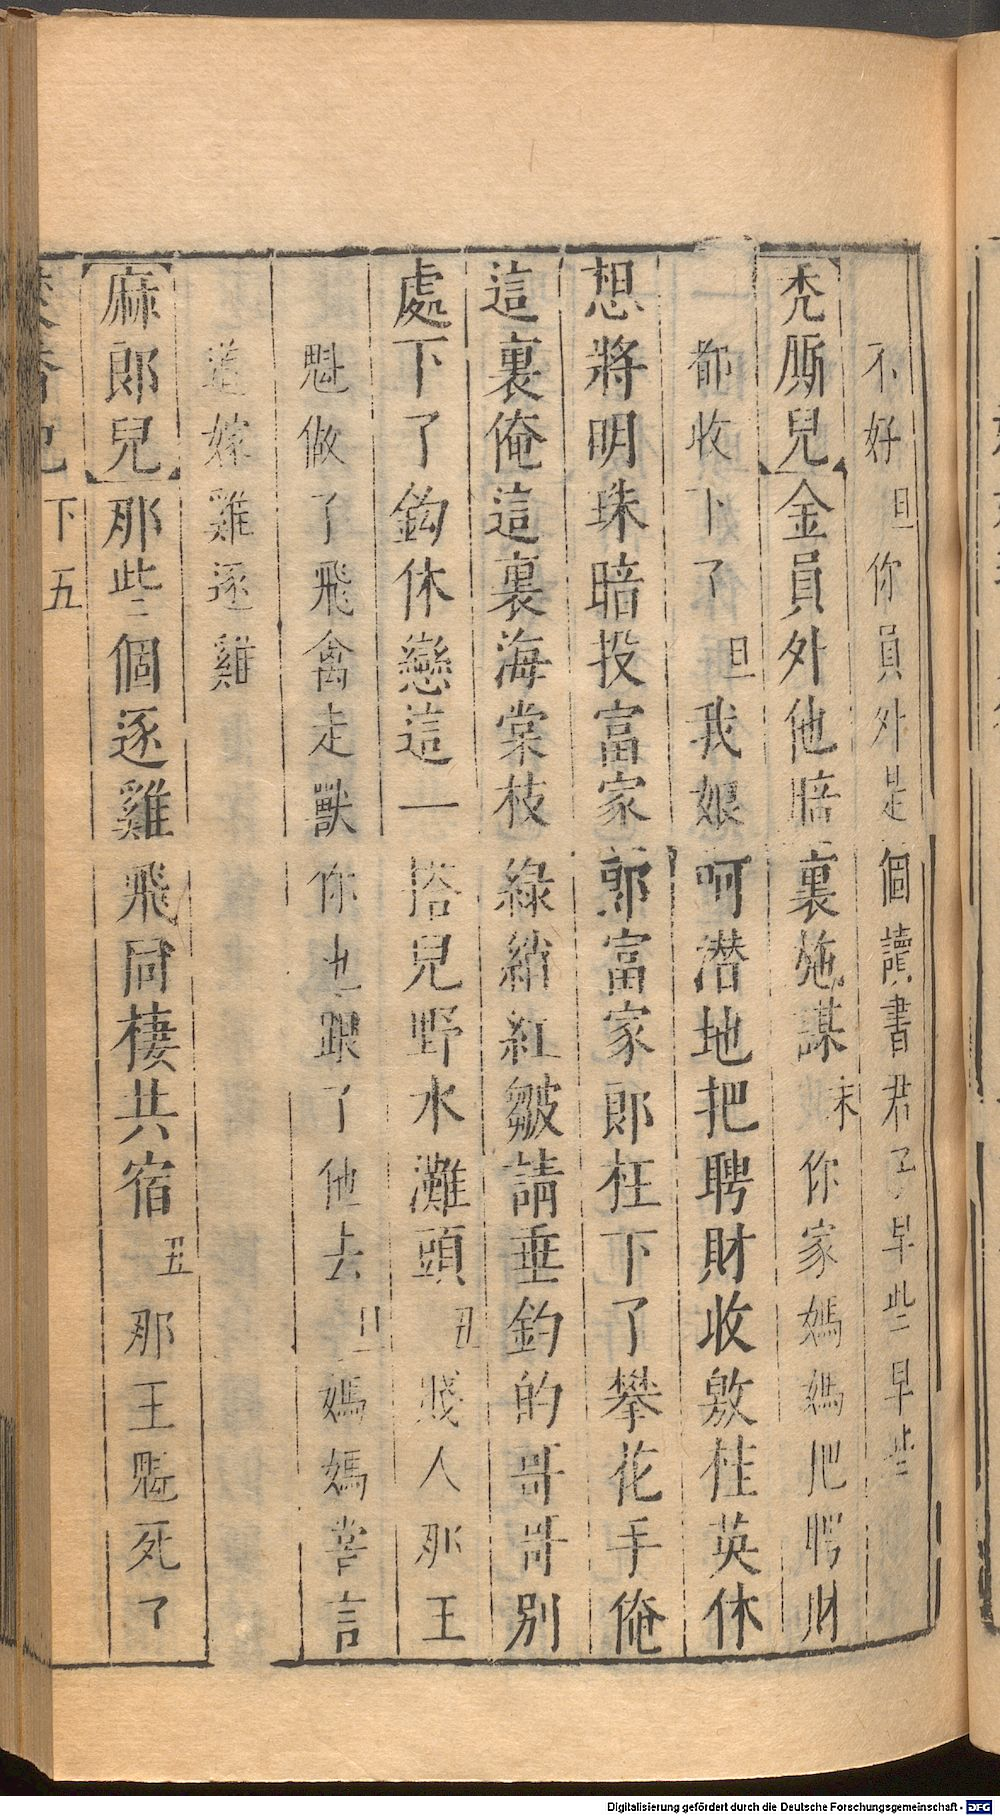 不好旦你員外是個讀書君子早些早些
禿厮兒金員外他賠裏施謀末你家媽媽媽把聘財
都收下了旦我娘呵潛地把聘財收敫桂英休
想將明珠暗投富家郎富家郎枉下了攀花手俺
這裏俺這裏海棠枝綠綃紅皺請垂鈞的哥哥別
處下了鈎休戀這一搭兒野水灘頭丑賤人那王
魁做了飛禽走獸你也跟了他去旦媽媽嘗言
道嫁雞逐雞
麻郎兒那些個逐雞飛同棲共宿丑那王魁死了
焚香記 下 五
Digitalisierung gefördert durch die Deutsche Forschungsgemeinschaft - DFG